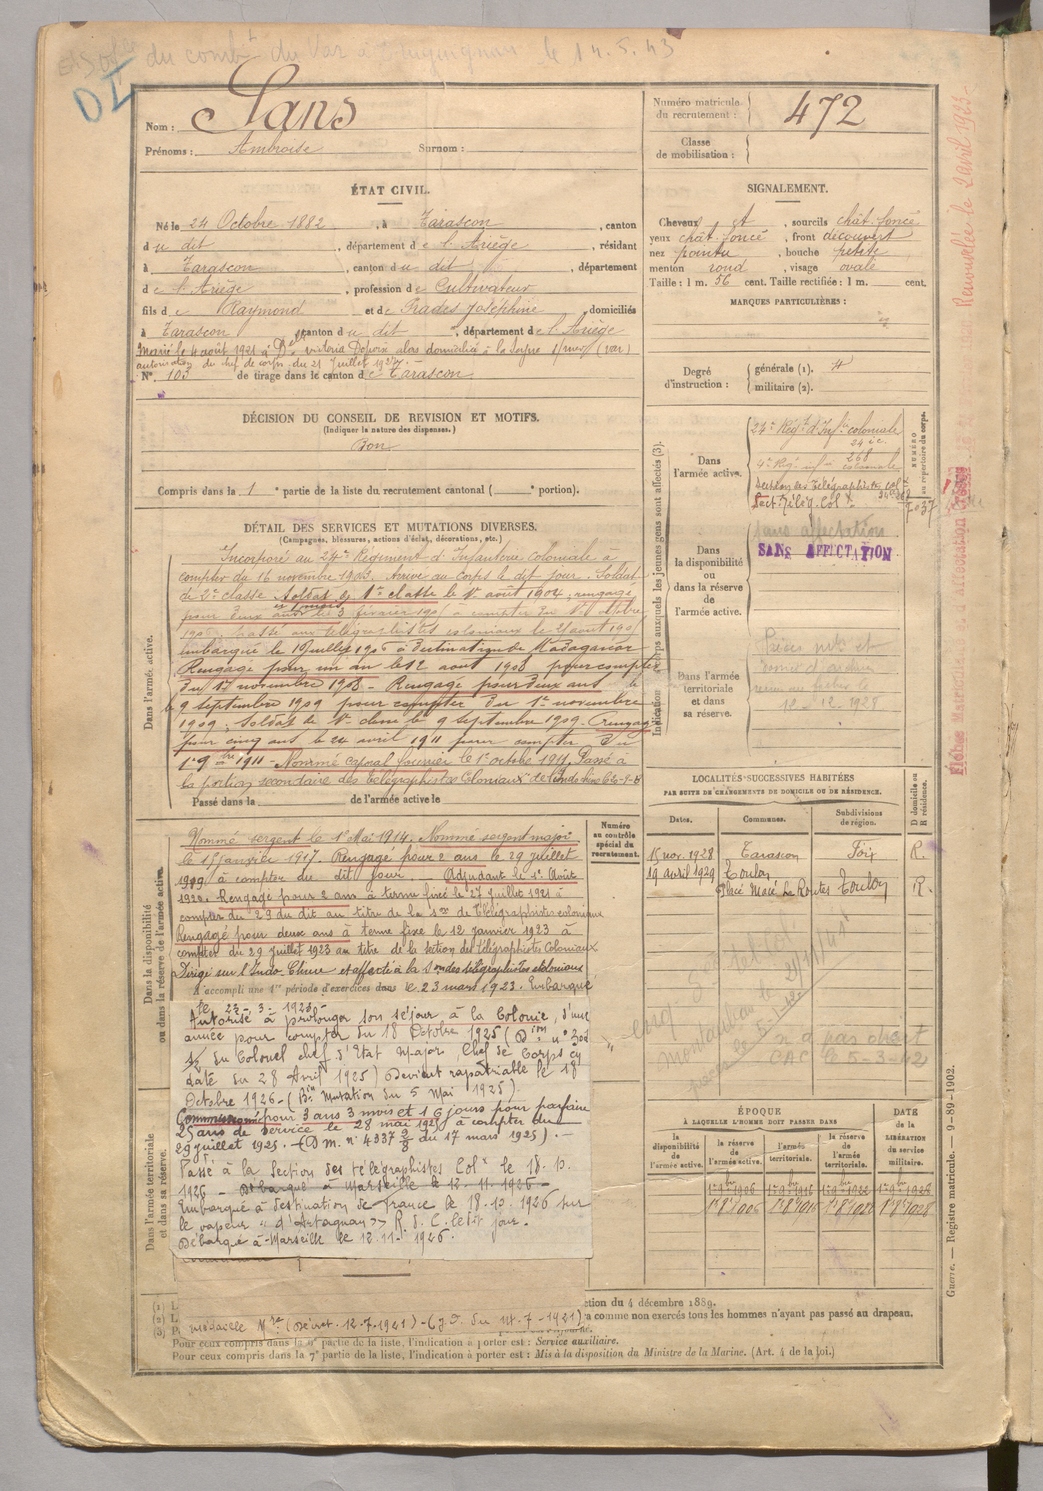 du comb^t du Var à le 14.5.43
DI
Nom : Sans
Prénoms : Ambroise Surnom :
Numéro matricule du recrutement : 472
Classe de mobilisation :
ÉTAT CIVIL.
Né le 24 Octobre 1882, à Tarascon, canton
du dit, département de l'Ariège, résidant
à Tarascon, canton du dit, département
de l'Ariège, profession de Cultivateur
fils de Raymond et de Prades Joséphine, domiciliés
à Tarascon, canton du dit, département de l'Ariège
Marié le 4 août 1921 à D^elle Victoria Depoix alors domiciliée à la Seyne s/mer (Var)
autorisation du chef de corps du 21 juillet 192
N° 103 de tirage dans le canton de Tarascon
SIGNALEMENT.
Cheveux et, sourcils chât. foncé
yeux chât. foncé, front découvert
nez pointu, bouche petite
menton rond, visage ovale
Taille : 1 m. 56 cent. Taille rectifiée : 1 m. cent.
MARQUES PARTICULIÈRES :
Degré d'instruction : générale (1).
militaire (2).
DÉCISION DU CONSEIL DE REVISION ET MOTIFS.
(Indiquer la nature des dispenses.)
Bon
Compris dans la 1^e partie de la liste du recrutement cantonal ( portion).
DÉTAIL DES SERVICES ET MUTATIONS DIVERSES.
(Campagnes, blessures, actions d'éclat, décorations, etc.)
Dans l'armée active.
Incorporé au 24^e Régiment d'Infanterie coloniale à
compter du 16 novembre 1903. Arrivé au corps le dit jour. Soldat
de 2^e classe Soldat de 1^e classe le 1^er août 1904, rengagé
pour deux ans le 3 février 190 à compter du
190 passé aux télégraphistes coloniaux le 21 août 190
Embarqué le 10 juillet 190 à destination de Madagascar
Rengagé pour un an le 12 août 1908 pour compter
du 17 novembre 1908 - Rengagé pour deux ans le
9 septembre 1909 pour compter du 1^er novembre
1909. Soldat de 1^e classe le 9 septembre 1909. Rengagé
pour cinq ans le 24 avril 1911 pour compter du
1911 - Nommé caporal fourrier le 1^er octobre 1911. Passé à
la portion secondaire des télégraphistes Coloniaux de l'Indo chine
Passé dans la de l'armée active le
Indication des corps auxquels les jeunes gens sont affectés (3).
NUMÉRO au répertoire du corps.
Dans l'armée active.
24^e Rég^t d'Inf^ie coloniale
24 i.c.
4^e Rég^t coloniale
268
Section des Télégraphistes col
Sect. Télég. Col^x
7037
Dans la disponibilité ou dans la réserve de l'armée active.
sans affectation
SANS AFFECTATION
Dans l'armée territoriale et dans sa réserve.
12-12-1928
Renouvelée le 2 avril 1923
Fiches Matricule et d'affectation
LOCALITÉS SUCCESSIVES HABITÉES
PAR SUITE DE CHANGEMENTS DE DOMICILE OU DE RÉSIDENCE.
Dates. Communes. Subdivisions de région. D domicile ou R résidence.
15 nov. 1928 Tarascon Foix R.
19 avril 1929 Toulon
Place Macé Toulon R.
Dans la disponibilité ou dans la réserve de l'armée active.
Numéro au contrôle spécial du recrutement.
Nommé sergent le 1^er Mai 1914. Nommé sergent major
le 15 janvier 1917. Rengagé pour 2 ans le 29 juillet
1919 à compter du dit jour. Adjudant le 1^er Août
1920. Rengagé pour 2 ans à terme fixé le 27 juillet 1921 à
compter du 29 du dit au titre de la s^on de Télégraphistes coloniaux
Rengagé pour deux ans à terme fixe le 12 janvier 1923 à
compter du 29 juillet 1923 au titre de la section des télégraphistes Coloniaux
Dirigé sur l'Indo-Chine et affecté à la S^on des télégraphistes coloniaux
A accompli une 1^re période d'exercices dans le 23 mars 1923. Embarqué
le 23-3-1923.-
Autorisé à prolonger son séjour à la Colonie, d'une
année pour compter du 18 Octobre 1925 (D^ion n° 303
½ du Colonel chef d'Etat Major, Chef de Corps en
date du 28 Avril 1925) Devient rapatriable le 18
Octobre 1926 - (B^in Mutation du 5 Mai 1925).
Commissionné pour 3 ans 3 mois et 16 jours pour parfaire
25 ans de service le 28 mai 1925 à compter du
29 juillet 1925. - (D.M. n° 4337 2/8 du 17 mars 1925). -
Passé à la Section des télégraphistes Col^x le 18.10.
1926 - Débarqué à Marseille le 12-11-1926 -
Embarqué à destination de France le 18-10-1926 sur
le vapeur "d'Artagnan" R. d. C. le dit jour.
Débarqué à Marseille le 12.11.1926.
Dans l'armée territoriale et dans sa réserve.
médaille M^re (Décret. 12-7-1921) - (J.O. du 14-7-1921)
n'a pas droit
CAC le 5-3-42
ÉPOQUE
À LAQUELLE L'HOMME DOIT PASSER DANS
la disponibilité de l'armée active. la réserve de l'armée active. l'armée territoriale. la réserve de l'armée territoriale. DATE de la LIBÉRATION du service militaire.
1^er 9^bre 1906 1^er 9^bre 1916 1^er 9^bre 1922 1^er 9^bre 1928
1^er 8^bre 1906 1^er 8^bre 1916 1^er 8^bre 1922 1^er 8^bre 1928
ction du 4 décembre 1889.
a comme non exercés tous les hommes n'ayant pas passé au drapeau.
Pour ceux compris dans la partie de la liste, l'indication à porter est : Service auxiliaire.
Pour ceux compris dans la 7^e partie de la liste, l'indication à porter est : Mis à la disposition du Ministre de la Marine. (Art. 4 de la loi.)
Guerre. — Registre matricule. — 9-89-1902.